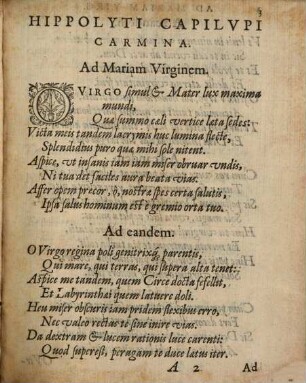 HIPPOLYTI CAPILVPI
CARMINA.
Ad Mariam Virginem.
O VIRGO simul & Mater lux maxima
mundi,
Quæ summo cæli vertice læta sedes:
Victa meis tandem lacrymis huc lumina flecte,
Splendidius puro quæ mihi sole nitent.
Aspice, vt insanis iam iam miser obruar vndis,
Ni tua det faciles aura beata vias.
Affer opem precor, ô, nostræ spes certa salutis,
Ipsa salus hominum est è gremio orta tuo.
Ad eandem.
O Virgo regina poli genitrixq́; parentis,
Qui mare, qui terras, qui supera alta tenet:
Aspice me tandem, quem Circe docta fefellit,
Et Labyrinthæi quem latuere doli.
Heu miser obscuris iam pridem flexibus erro,
Nec valeo rectas te sine inire vias.
Da dextram & lucem rationis luce carenti:
Quod superest, peragam te duce latus iter.
A 2 Ad